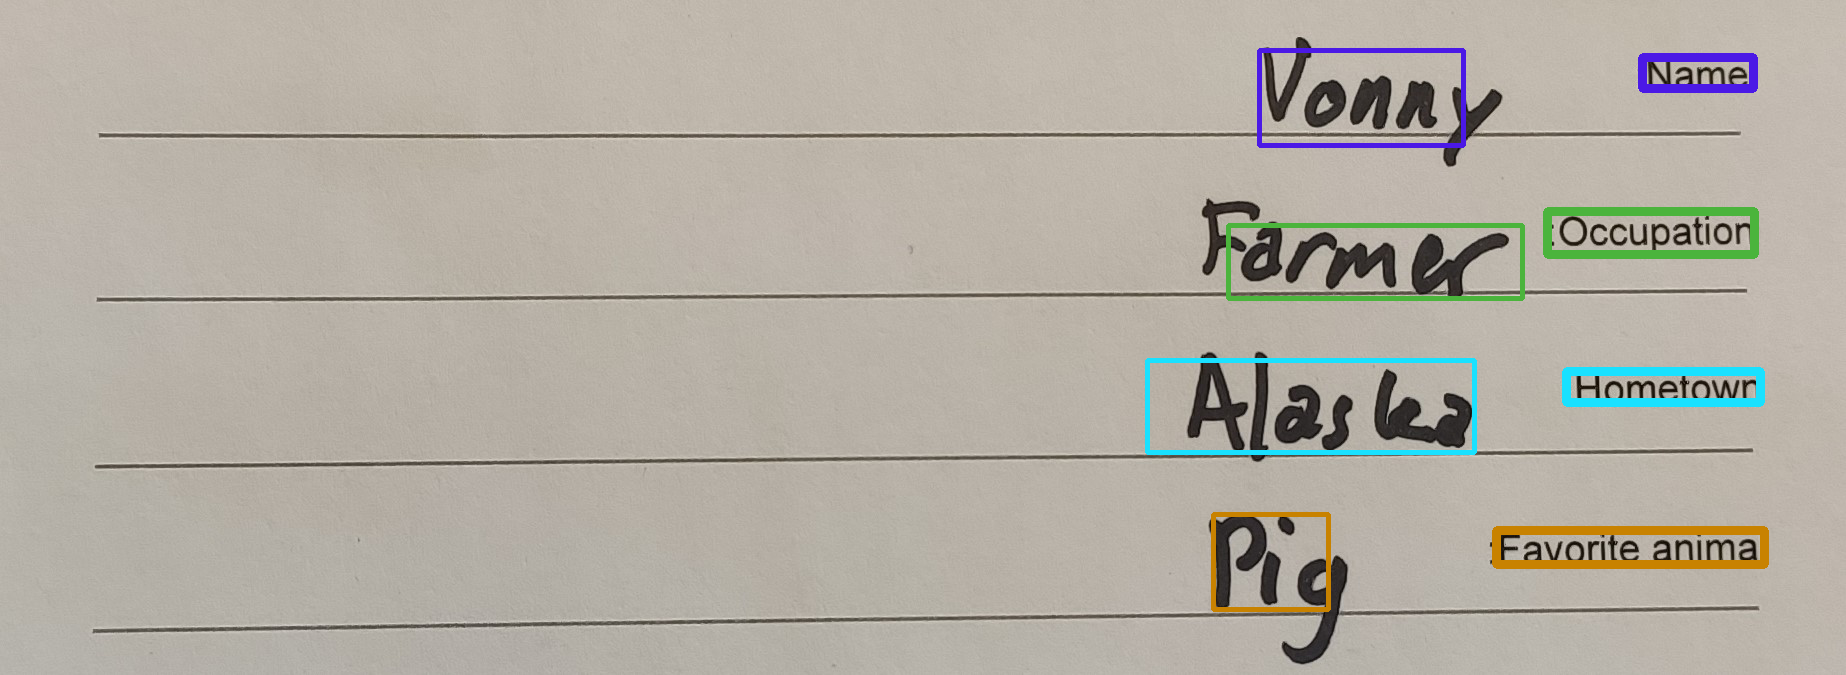 Vonny Name
Farmer :Occupation
Alaska Hometown
Pig :Favorite anima